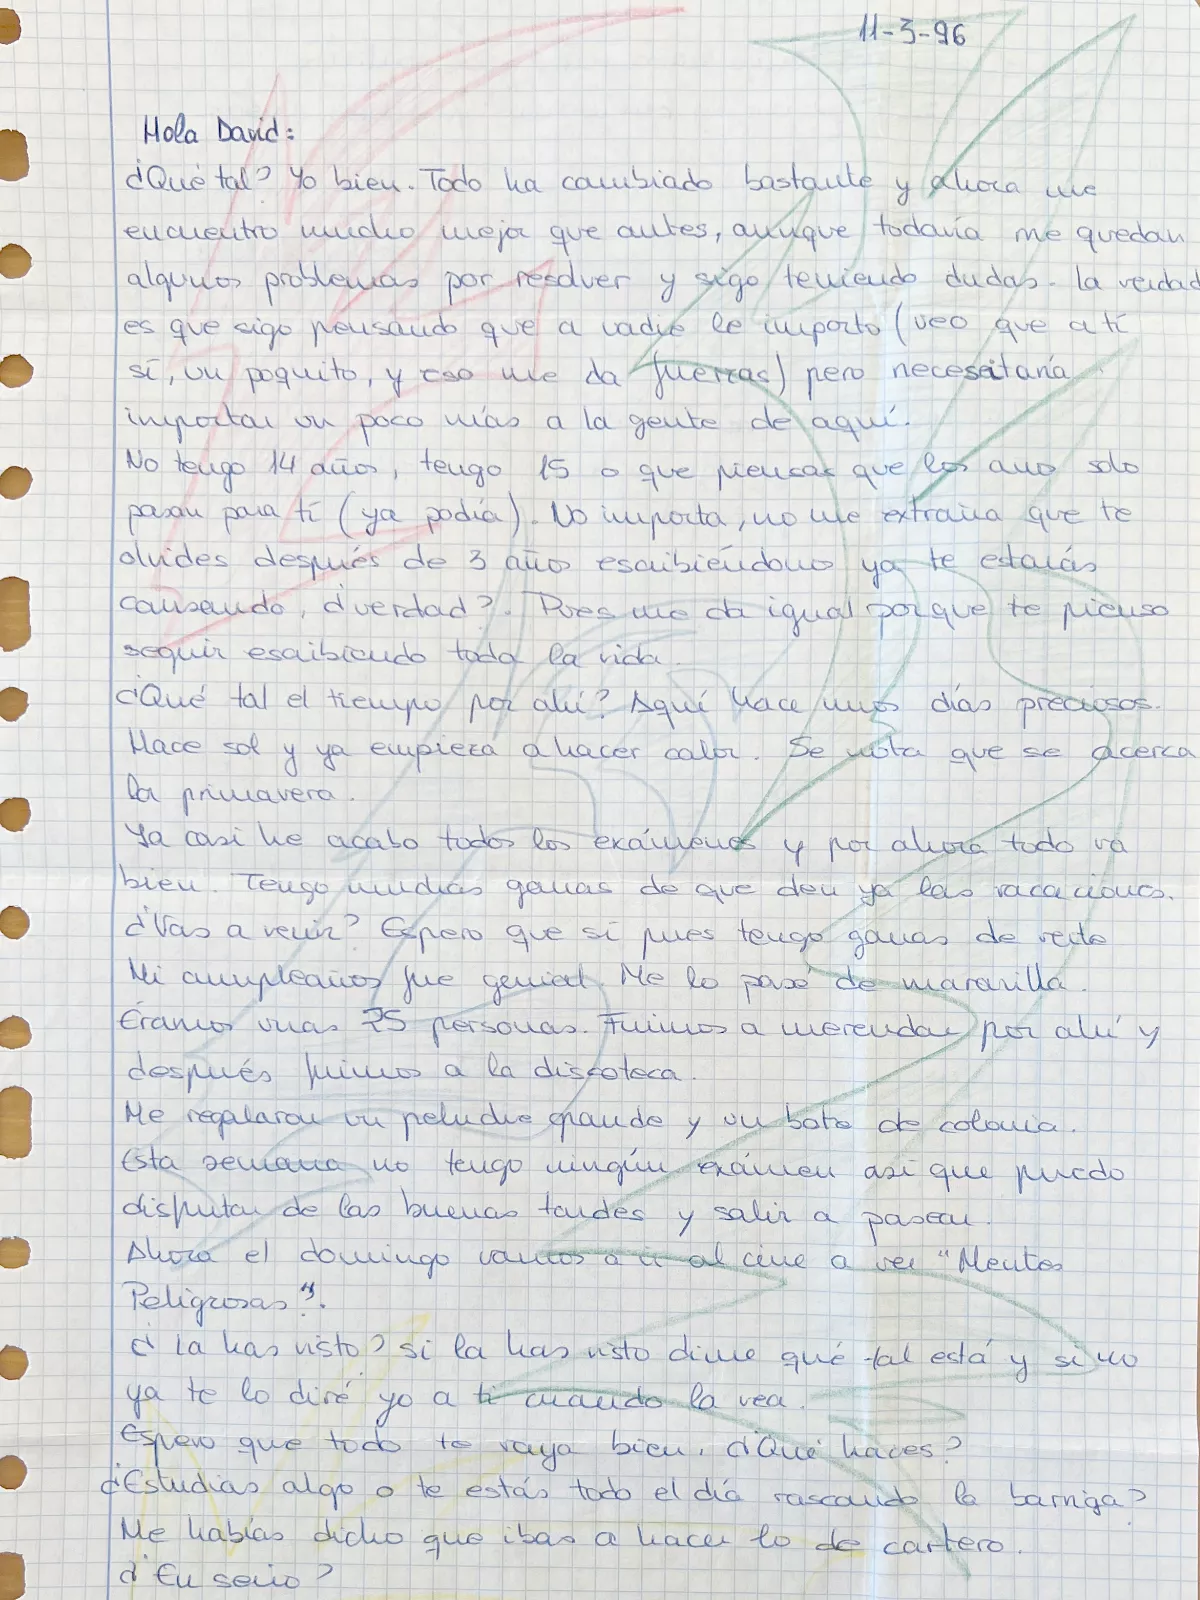 11-3-96
Hola David:
¿Qué tal? Yo bien. Todo ha cambiado bastante y ahora me
encuentro mucho mejor que antes, aunque todavía me quedan
algunos problemas por resolver y sigo teniendo dudas. La verdad
es que sigo pensando que a nadie le importo (veo que a tí
sí, un poquito, y eso me da fuerzas) pero necesitaría
importar un poco más a la gente de aquí.
No tengo 14 años, tengo 15 o que piensas que los año solo
pasan para tí (ya podía). No importa, no me extraña que te
olvides después de 3 año escribiéndonos ya te estarás
cansando, ¿verdad?. Pues me da igual porque te pienso
seguir escribiendo toda la vida.
¿Qué tal el tiempo por ahí? Aquí hace unos días preciosos.
Hace sol y ya empieza a hacer calor. Se nota que se acerca
la primavera.
Ya casi he acabo todos los exámenes y por ahora todo va
bien. Tengo muchas ganas de que den ya las vacaciones.
¿Vas a venir? Espero que sí pues tengo ganas de verte
Mi cumpleaños fue genial. Me lo pasé de maravilla.
Éramos unas 25 personas. Fuimos a merendar por ahí y
después fuimos a la discoteca.
Me regalaron un peluche grande y un bote de colonia.
Esta semana no tengo ningún exámen así que puedo
disfrutar de las buenas tardes y salir a pasear.
Ahora el domingo vamos a ir al cine a ver "Mentes
Peligrosas".
¿La has visto? si la has visto dime qué tal está y si no
ya te lo diré yo a ti cuando la vea.
Espero que todo te vaya bien. ¿Qué haces?
¿Estudias algo o te estás todo el día rascando la barriga?
Me habías dicho que ibas a hacer lo de cartero.
¿En serio?